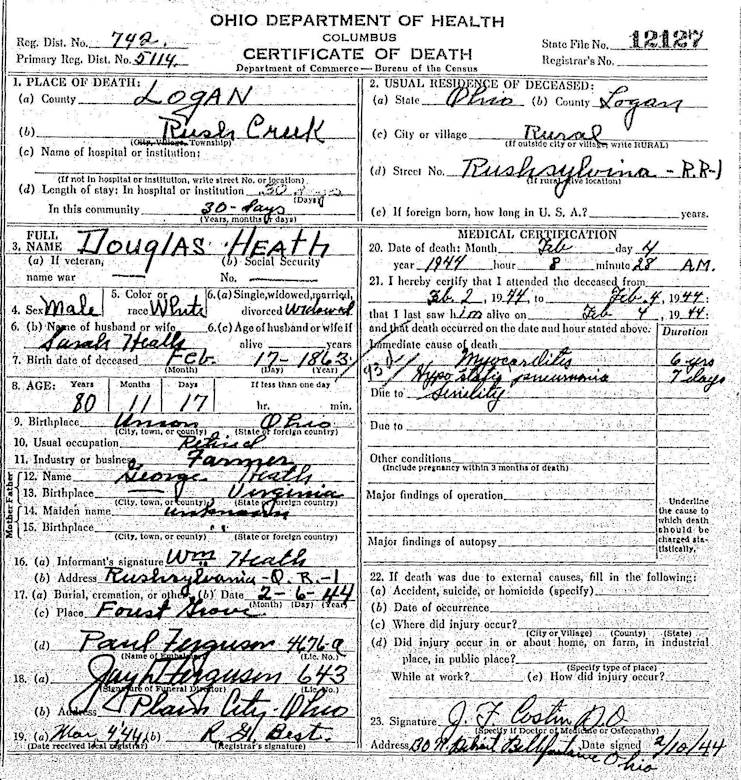 OHIO DEPARTMENT OF HEALTH
COLUMBUS
CERTIFICATE OF DEATH
Department of Commerce — Bureau of the Census
Reg. Dist. No. 742
Primary Reg. Dist. No. 5114
State File No. 12127
Registrar's No.
1. PLACE OF DEATH:
(a) County LOGAN
(b) Rush Creek
(City, Village, Township)
(c) Name of hospital or institution:
(If not in hospital or institution, write street No. or location)
(d) Length of stay: In hospital or institution 30
(Days)
In this community 30-days
(Years, months or days)
2. USUAL RESIDENCE OF DECEASED:
(a) State Ohio (b) County Logan
(c) City or village Rural
(If outside city or village, write RURAL)
(d) Street No. Rushsylvina - R.R-1
(If rural give location)
(e) If foreign born, how long in U. S. A.? years.
3. FULL NAME DOUGLAS HEATH
(a) If veteran, name war —
(b) Social Security No. —
4. Sex Male
5. Color or race White
6. (a) Single, widowed, married, divorced Widowed
6. (b) Name of husband or wife Sarah Heath
6. (c) Age of husband or wife if alive years
7. Birth date of deceased Feb. 17-1863
(Month) (Day) (Year)
8. AGE: Years Months Days If less than one day
80 11 17 hr. min.
9. Birthplace Union Ohio
(City, town, or county) (State or foreign country)
10. Usual occupation Retired
11. Industry or business Farmer
Father
12. Name George Heath
13. Birthplace — Virginia
(City, town, or county) (State or foreign country)
Mother
14. Maiden name unknown
15. Birthplace " "
(City, town, or county) (State or foreign country)
16. (a) Informant's signature Wm Heath
(b) Address Rushsylvania-O. R.-1
17. (a) Burial, cremation, or other (b) Date 2-6-44
(Month) (Day) (Year)
(c) Place Forest Grove
(d) Paul Ferguson 4676-a
(Name of Embalmer) (Lic. No.)
18. (a) Jay Ferguson 643
(Signature of Funeral Director) (Lic. No.)
(b) Address Plain City-Ohio
19. (a) Mar 4 '44 (b) R. G. Best.
(Date received local registrar) (Registrar's signature)
MEDICAL CERTIFICATION
20. Date of death: Month Feb day 4
year 1944 hour 8 minute 28 A.M.
21. I hereby certify that I attended the deceased from
Feb. 2, 1944 to Feb. 4, 1944:
that I last saw him alive on Feb 4, 1944:
and that death occurred on the date and hour stated above.
Duration
Immediate cause of death
93d
Myocarditis 6 yrs
Hypostatic pneumonia 7 days
Due to Senility
Due to
Other conditions
(Include pregnancy within 3 months of death)
Major findings of operation
Major findings of autopsy
Underline the cause to which death should be charged statistically.
22. If death was due to external causes, fill in the following:
(a) Accident, suicide, or homicide (specify)
(b) Date of occurrence
(c) Where did injury occur?
(City or Village) (County) (State)
(d) Did injury occur in or about home, on farm, in industrial
place, in public place?
(Specify type of place)
While at work? (e) How did injury occur?
23. Signature J. F. Costin D.O
(Specify if Doctor of Medicine or Osteopathy)
Address 130 N. Detroit Bellefontaine Ohio Date signed 2/10/44